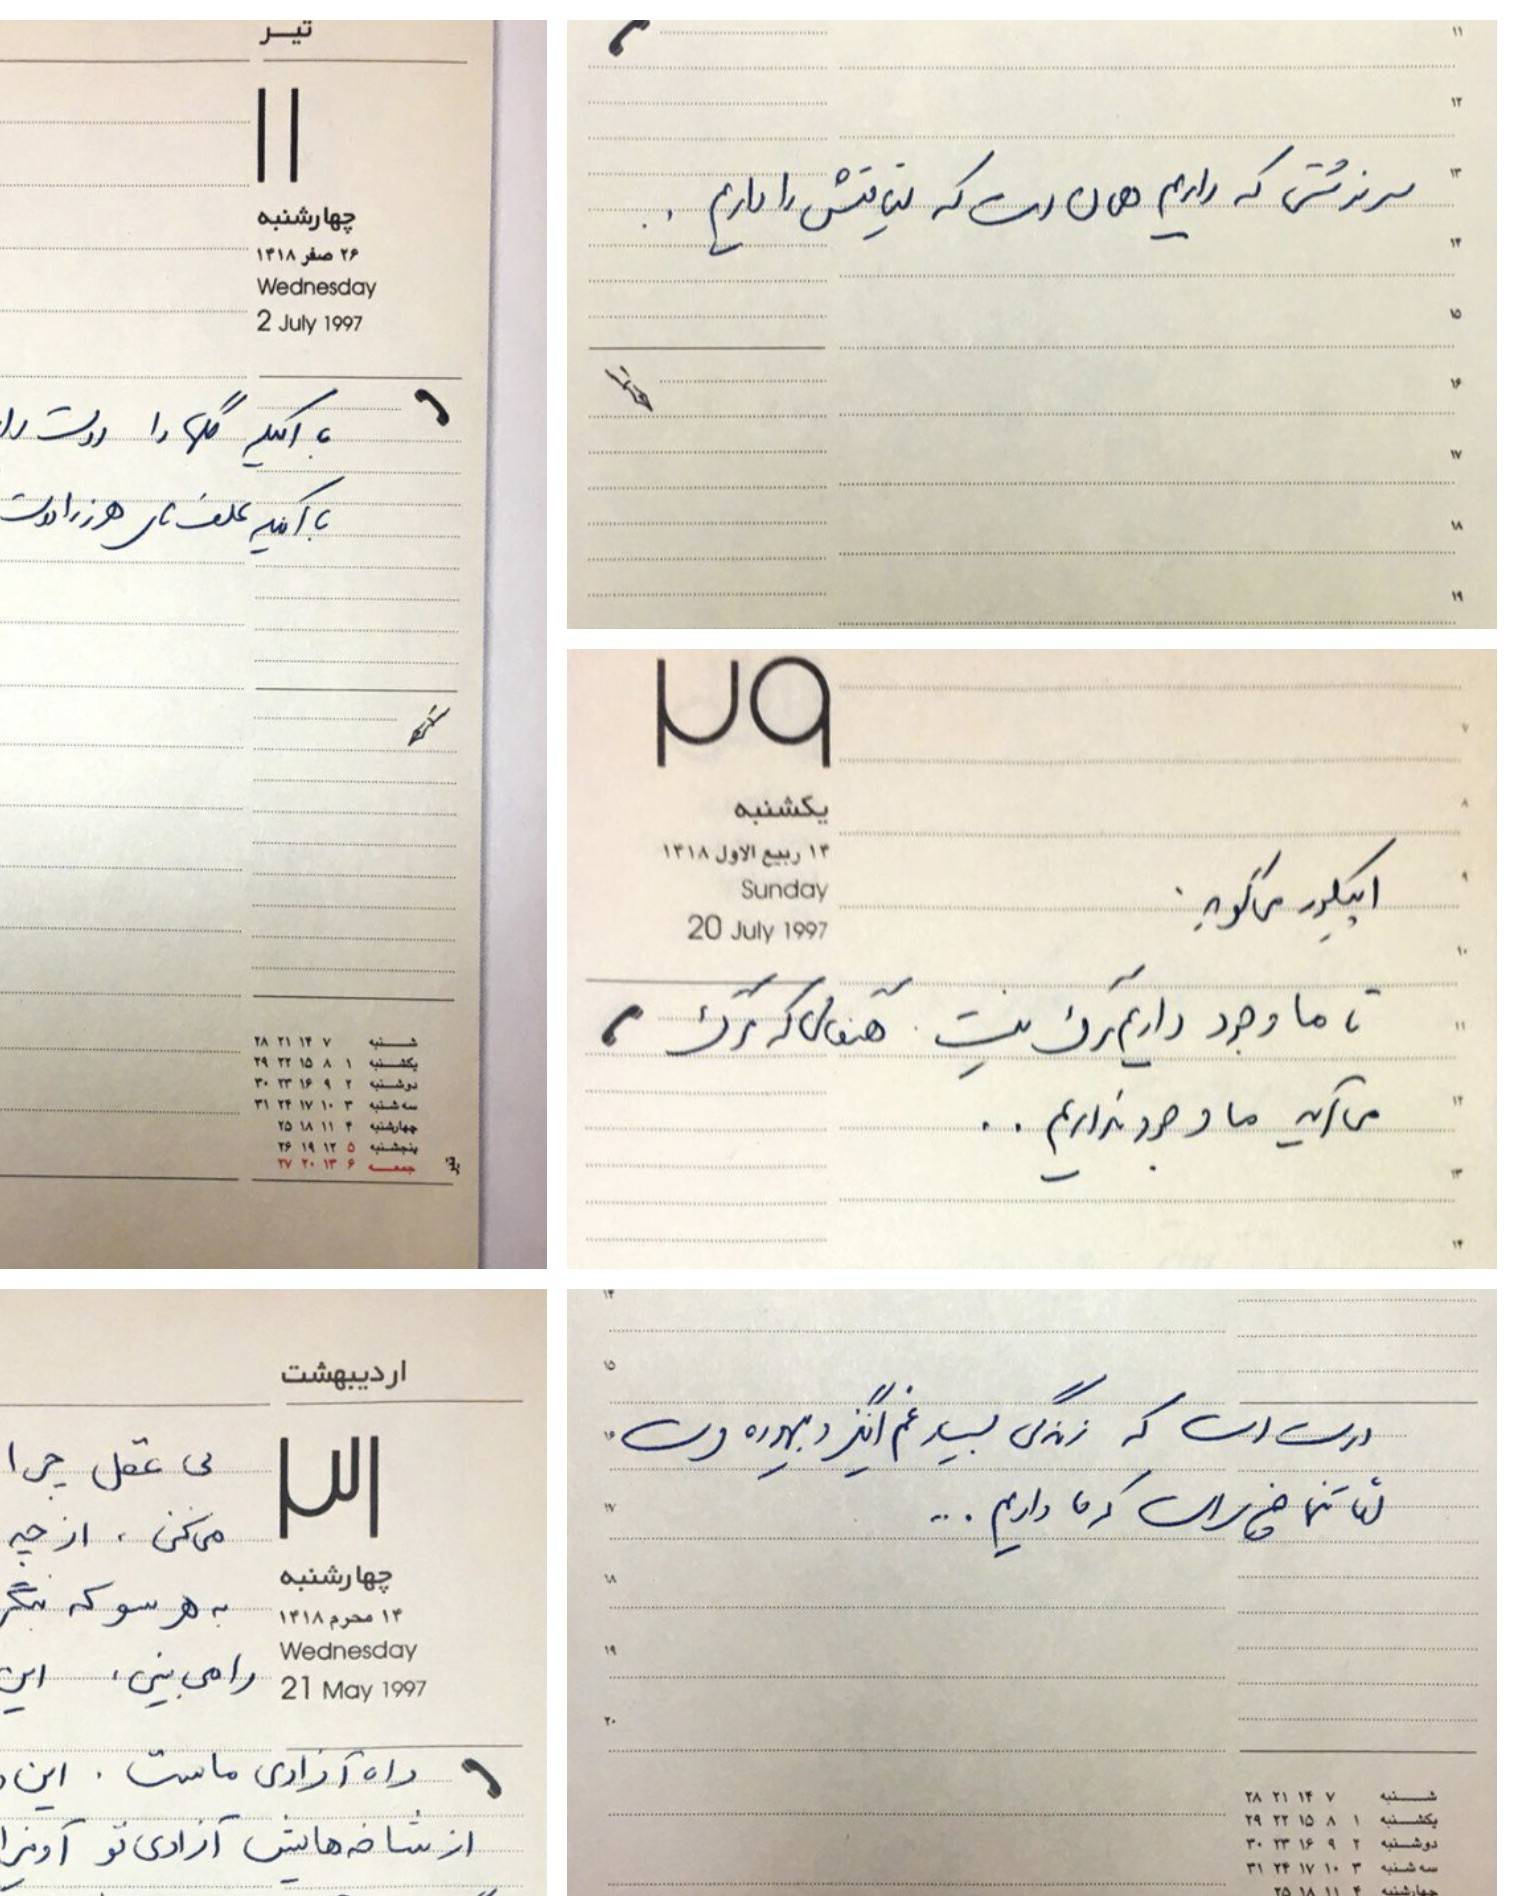 تیر
۱۱
چهارشنبه
۲۶ صفر ۱۴۱۸
Wednesday
2 July 1997
با آنکه گلها را دوست
با آنکه علف های هرز را دوست
شنبه ۷ ۱۴ ۲۱ ۲۸
یکشنبه ۱ ۸ ۱۵ ۲۲ ۲۹
دوشنبه ۲ ۹ ۱۶ ۲۳ ۳۰
سه شنبه ۳ ۱۰ ۱۷ ۲۴ ۳۱
چهارشنبه ۴ ۱۱ ۱۸ ۲۵
پنجشنبه ۵ ۱۲ ۱۹ ۲۶
جمعه ۶ ۱۳ ۲۰ ۲۷
تیر
۱۱
۱۲
۱۳
سرنوشتی که داریم همان است که لیاقتش را داریم .
۱۴
۱۵
۱۶
۱۷
۱۸
۱۹
۲۹
یکشنبه
۱۴ ربیع الاول ۱۴۱۸
Sunday
20 July 1997
۷
۸
۹
اپیکور می‌گوید:
۱۰
تا ما وجود داریم مرگ نیست . هنگامی که مرگ
۱۱
می‌آید ما وجود نداریم ...
۱۲
۱۳
۱۴
اردیبهشت
۳۱
چهارشنبه
۱۴ محرم ۱۴۱۸
Wednesday
21 May 1997
بی عقل چرا
می‌کنی . از چه
به هر سو که بنگر
را می بینی ، این
راه آزادی ماست . این
از شاخه هایش آزادی تو آویزا
۱۴
۱۵
درست است که زندگی بسیار غم انگیز و بیهوده است
۱۶
اما تنها چیزی است که ما داریم ...
۱۷
۱۸
۱۹
۲۰
شنبه ۷ ۱۴ ۲۱ ۲۸
یکشنبه ۱ ۸ ۱۵ ۲۲ ۲۹
دوشنبه ۲ ۹ ۱۶ ۲۳ ۳۰
سه شنبه ۳ ۱۰ ۱۷ ۲۴ ۳۱
چهارشنبه ۴ ۱۱ ۱۸ ۲۵